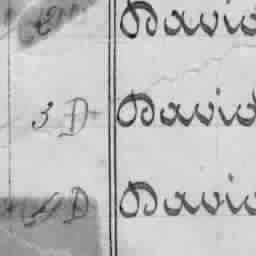 David
3 D David
4 D David